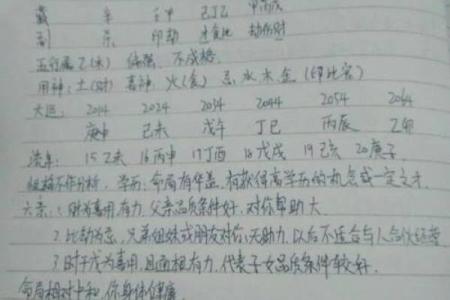 藏 辛 壬甲 己丁乙 甲丙戊
副 杀 印劫 才食比 劫伤财
五行属乙(木) 偏强 不成格
用神:土(财) 喜神:火(食) 忌:水木金(印比官)
大运: 2014 2024 2034 2044 2054 2064
庚申 己未 戊午 丁巳 丙辰 乙卯
流年: 15乙未 16丙申 17丁酉 18戊戌 19己亥 20庚子
性格不作分析, 学历:命局有华盖,有获得高学历的机会或一定之才
六亲:1.财为喜用有力,父亲品质条件好,对你帮助大
2.比劫为忌,兄弟姐妹或朋友对你无助力,以后不适合与人合伙经营
3.时干戊为喜用,且通根有力,代表子女品质条件较好.
命局相对中和,你身体健康